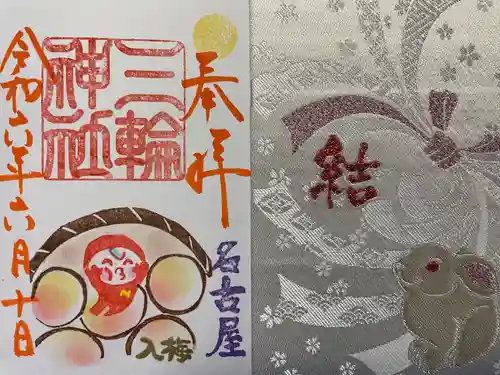 奉拝
三輪
神社
名古屋
入梅
令和六年六月十日
結